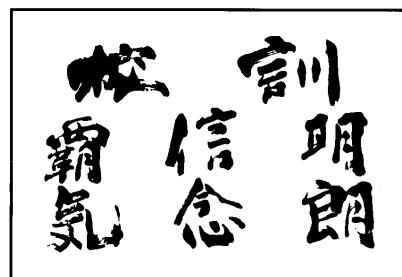 校訓
明朗
信念
覇氣